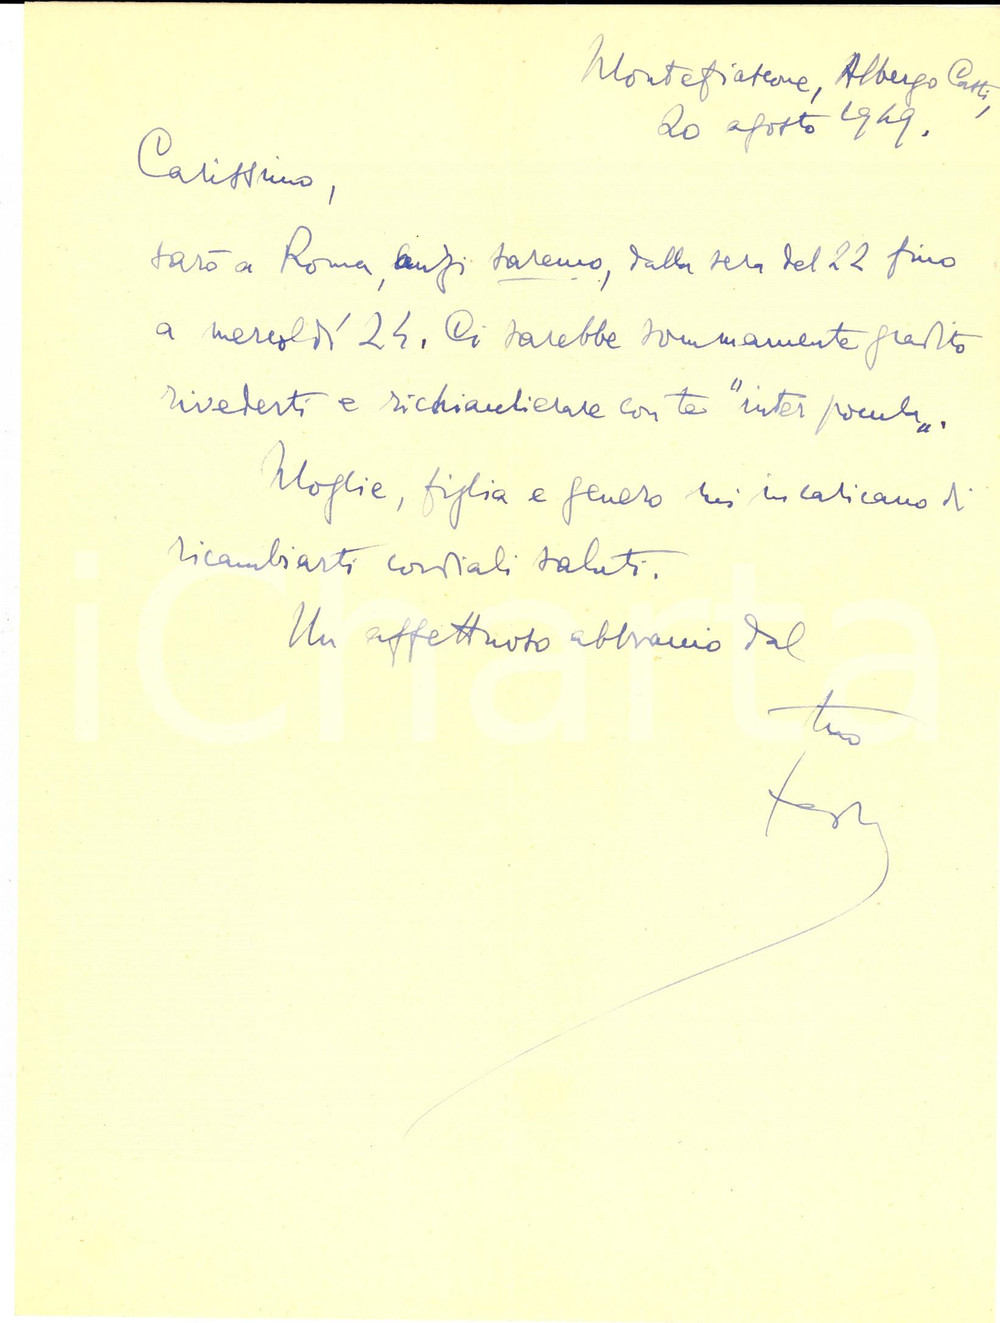 Montefiascone, Albergo Casti,
20 agosto 1949.
Carissimo,
sarò a Roma, anzi saremo, dalla sera del 22 fino
a mercoldì 24. Ci sarebbe sommamente gradito
rivederti e richiantierare con te "inter pocula".
Moglie, figlia e genero mi incaricano di
ricambiarti cordiali saluti.
Un affettuoso abbraccio dal
tuo
iCharta